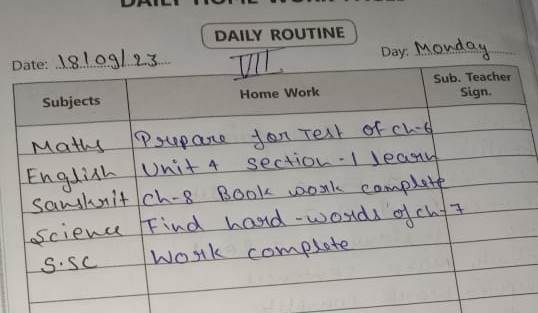 DAILY ROUTINE
Date: 18/09/23 VII Day: Monday
Subjects Home Work Sub. Teacher Sign.
Maths Prepare for Test of ch-6
English Unit 4 section-1 learn
Sanskrit Ch-8 Book work complete
Science Find hard-words of ch-7
S.SC Work complete